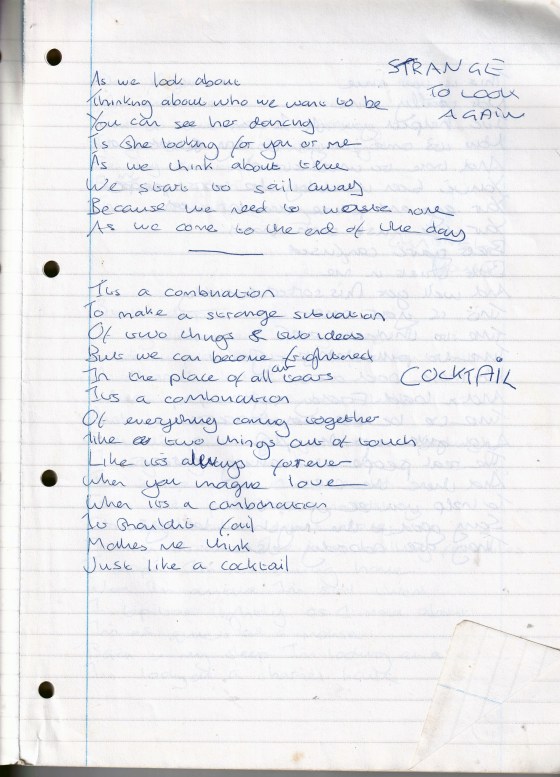 STRANGE
TO LOOK
AGAIN
As we look about
Thinking about who we want to be
You can see her dancing
Is she looking for you or me
As we think about time
We start to sail away
Because we need to waste none
As we come to the end of the day
Its a combination
To make a strange situation
Of two things & two ideas
But we can become frightened
In the place of all our tears
COCKTAIL
Its a combination
Of everything coming together
like two things out of touch
Like its always forever
When you imagine love
When its a combination
It Shouldnt fail
Makes me think
Just like a cocktail